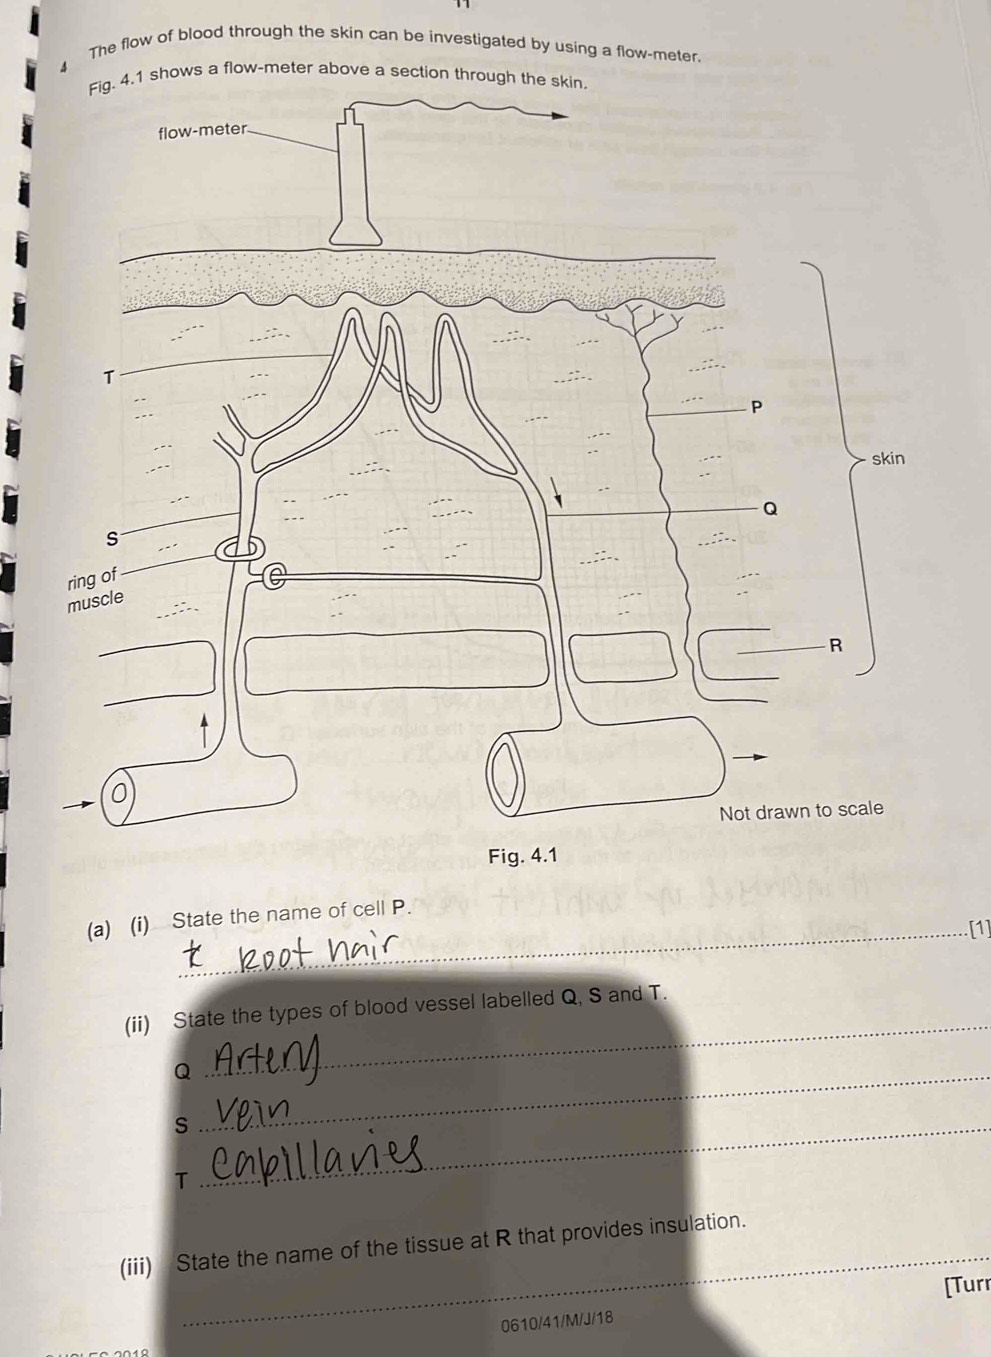 11
4 The flow of blood through the skin can be investigated by using a flow-meter.
Fig. 4.1 shows a flow-meter above a section through the skin.
flow-meter
T
P
skin
Q
S
ring of
muscle
R
Not drawn to scale
Fig. 4.1
(a) (i) State the name of cell P.
Root hair [1]
(ii) State the types of blood vessel labelled Q, S and T.
Q Artery
S vein
T capillaries
(iii) State the name of the tissue at R that provides insulation.
[Turn
0610/41/M/J/18
2018